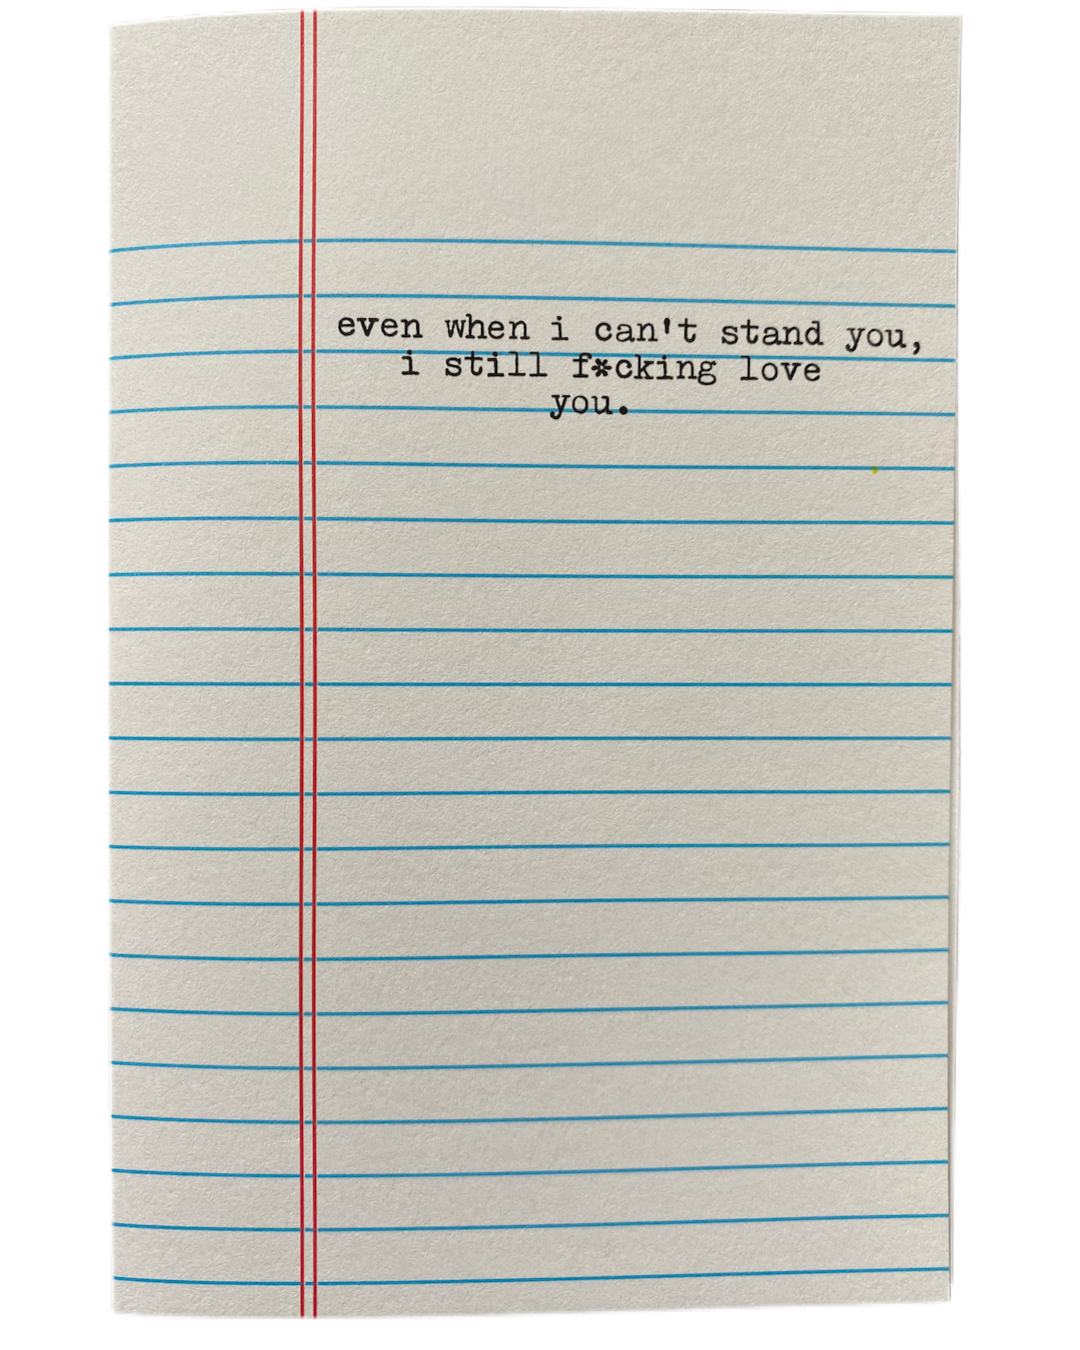 even when i can't stand you,
i still f*cking love
you.